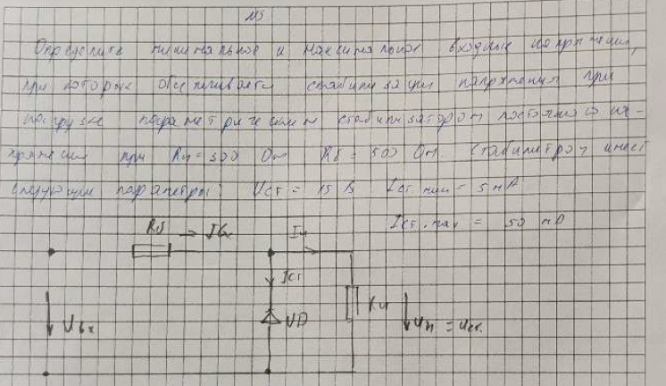 N5
Определить минимальное и максимальное входные напряжения,
при которых обеспечивается стабилизация напряжения при
нагрузке параметрическим стабилизатором постоянного на-
пряжения при Rн = 300 Ом Rб = 500 Ом. Стабилитрон имеет
следующие параметры: Uст = 15 В Iст.мин = 5 мА
Iст.max = 50 мА
Rб → Iвх Iн
Iст
Uвх VD Rн Uн = Uст.